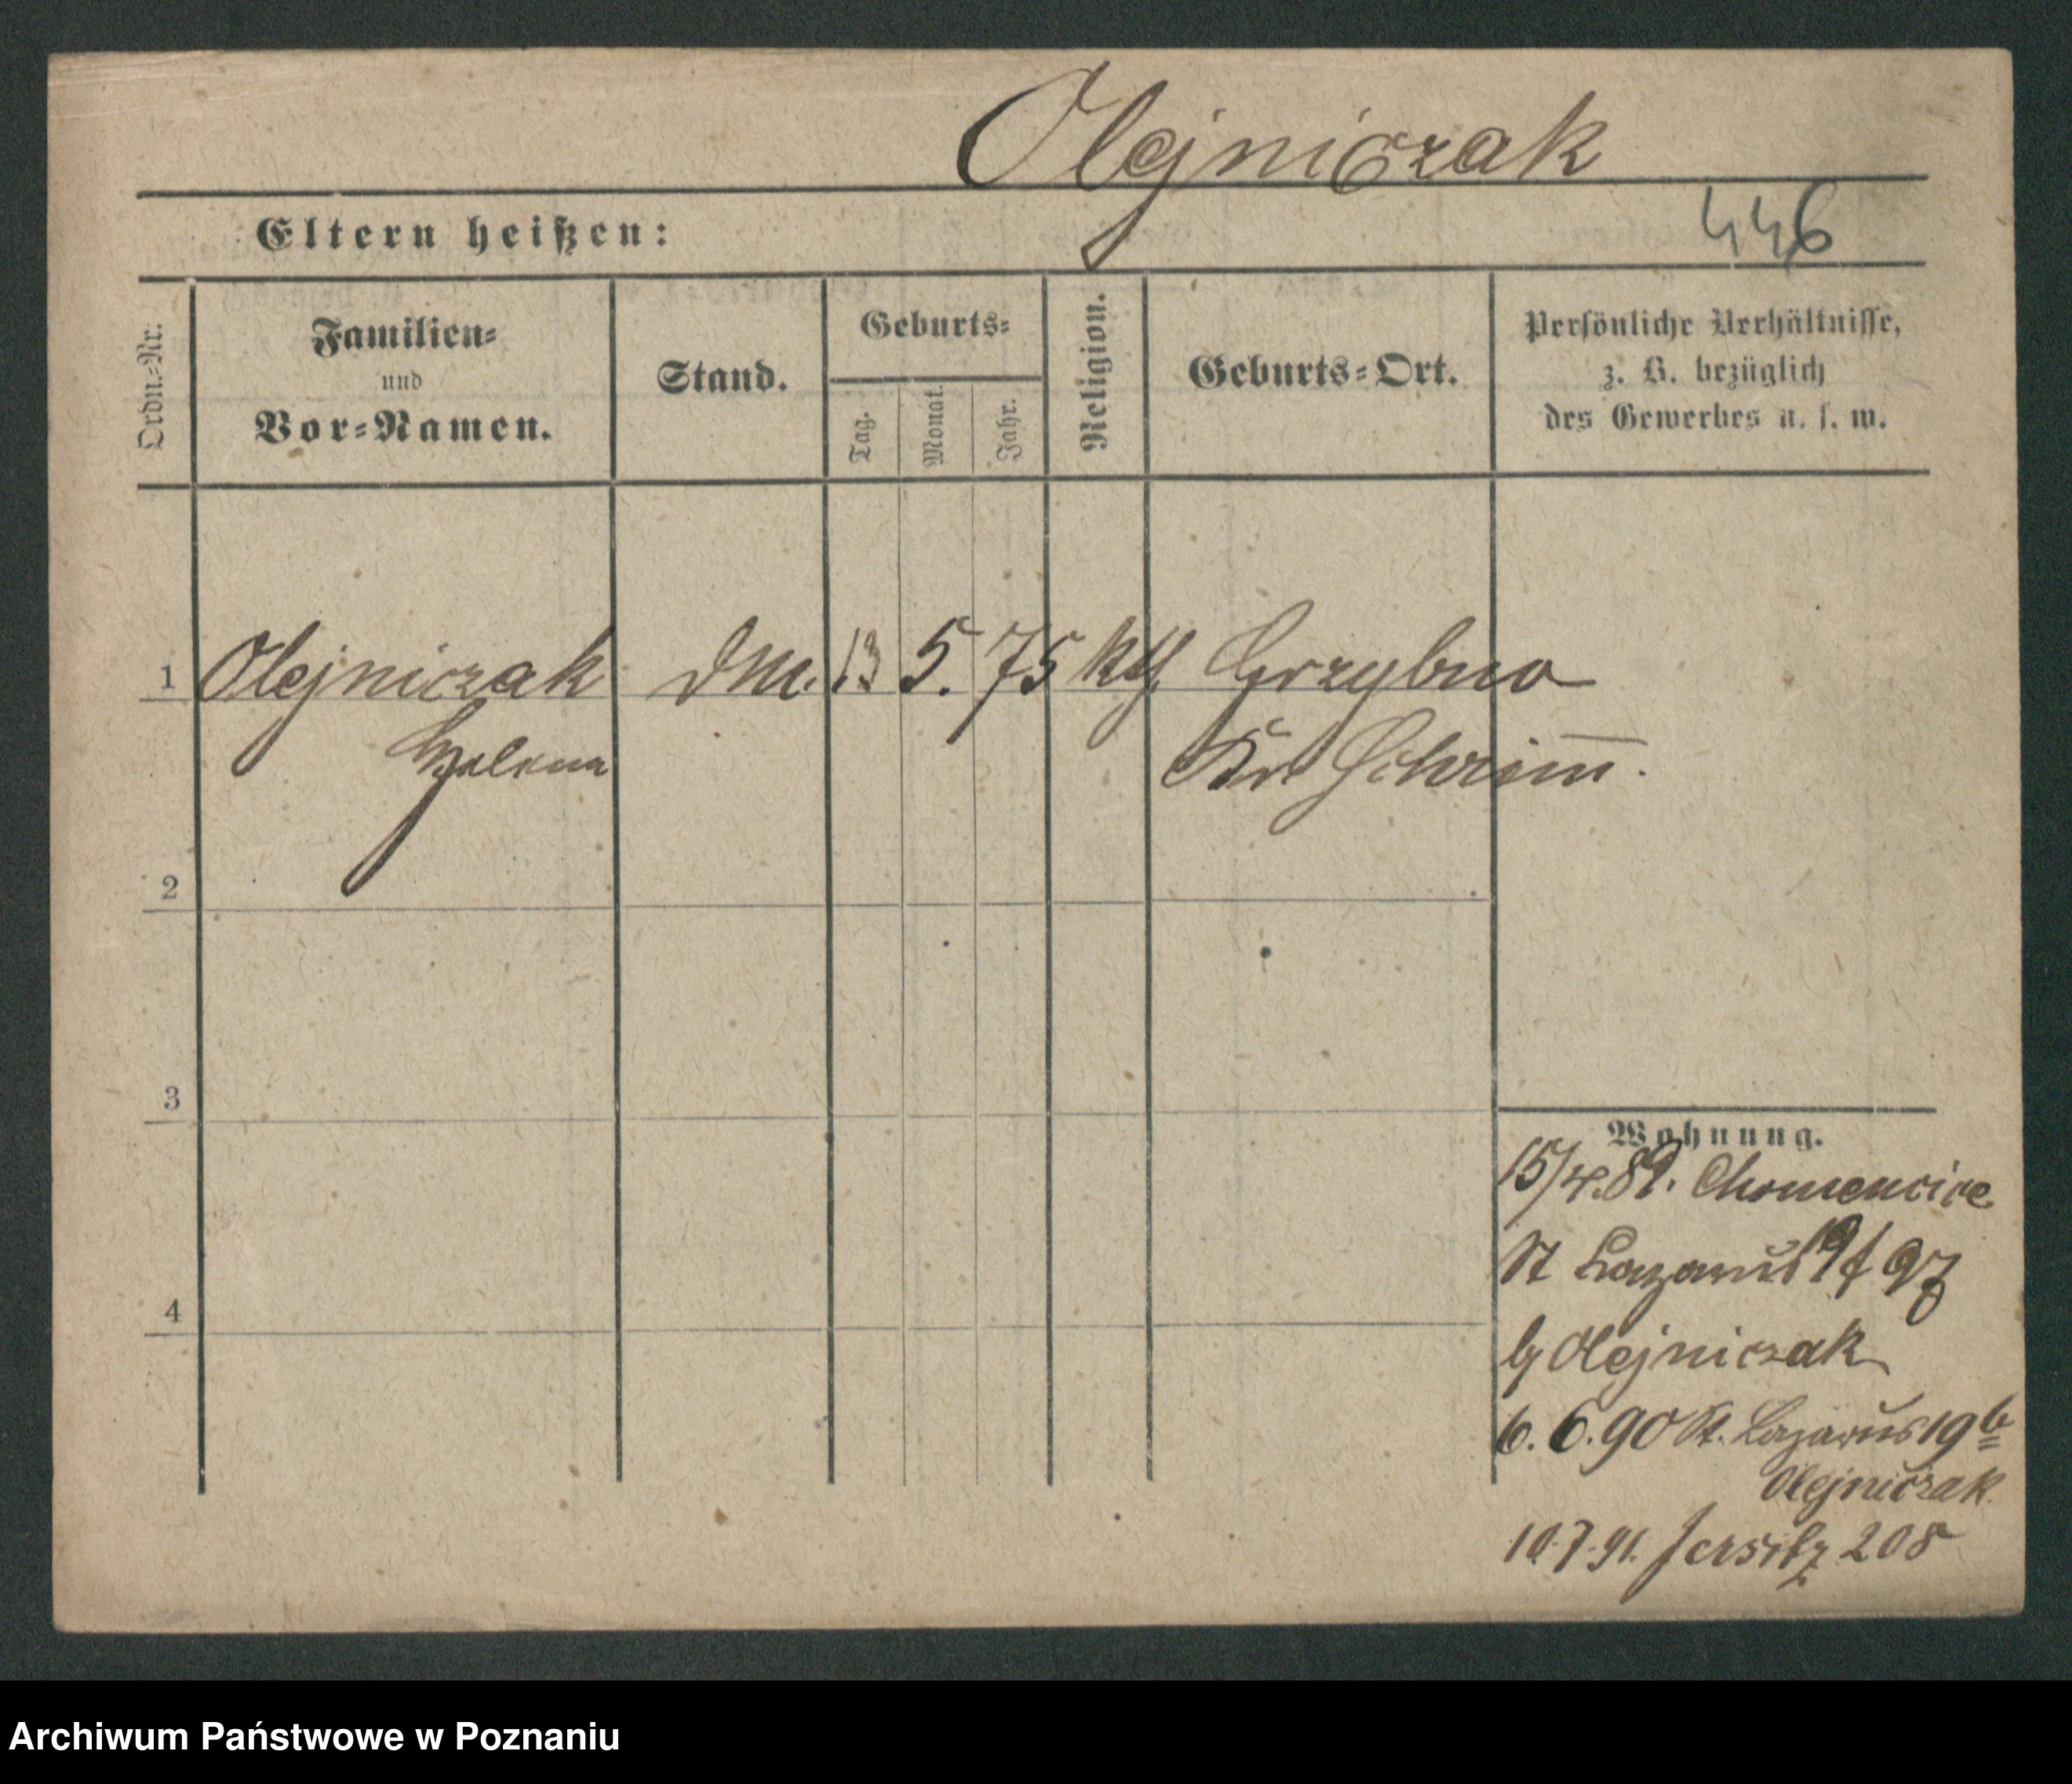 Olejniczak
446
Eltern heißen:
Ordn.=Nr.
Familien=
und
Vor=Namen.
Stand.
Geburts=
Tag.
Monat.
Jahr.
Religion.
Geburts=Ort.
Persönliche Verhältnisse,
z. B. bezüglich
des Gewerbes u. s. w.
1 Olejniczak 13 5. 75 kth. Grzybno
Helena Kr. Schrim̅.
2
3
4
Wohnung.
15/4.89. Chomencice
St Lazarus 19
Olejniczak
6.6.90 St. Lazarus 19 b
Olejniczak
10.7.91. Jersitz 208
Archiwum Państwowe w Poznaniu